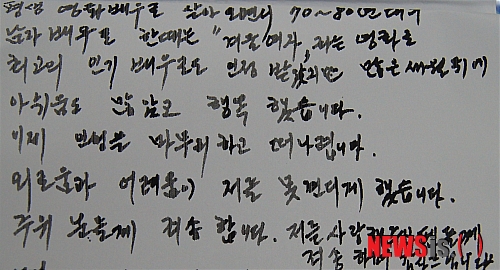 평생 영화배우로 살아 오면서 70~80년대에
남자 배우로 한때는 "겨울여자"라는 영화로
최고의 인기 배우로도 인정 받았지만 많은 세월 뒤에
아쉬움도 많았고 행복 했습니다.
이제 인생을 마무리 하고 떠나렵니다.
외로움과 어려움이 저를 못견디게 했습니다.
주위 분들께 죄송 합니다. 저를 사랑
NEWSIS
죄송 하며